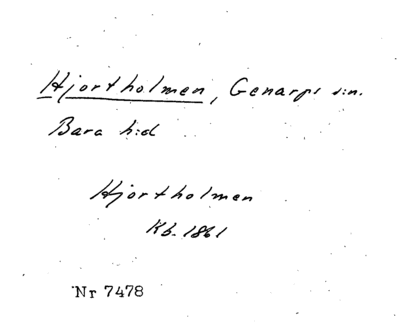 Hjortholmen, Genarps s:n.
Bara h:d
Hjortholmen
Kb. 1861
Nr 7478